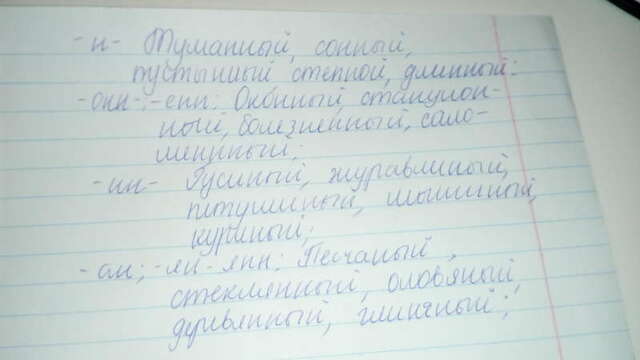 -н- Туманный, сонный,
пустынный степной, длинный:
-онн-; -енн: Оконный, станцион-
ный, болезненный, соло-
менный;
-ин- Гусиный, журавлиный,
питушиный, мышиный,
куриный;
-ан; -ян- янн: Песчаный,
стеклянный, оловяный,
деревянный, глиняный;